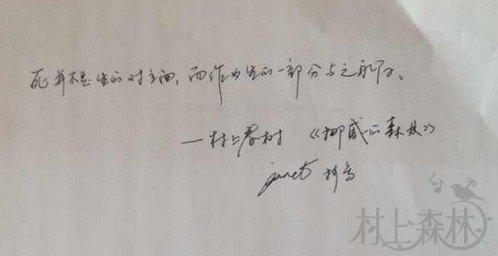 死并不是生的对立面，而作为生的一部分与之永存。
—村上春树 《挪威的森林》
janet
村上森林